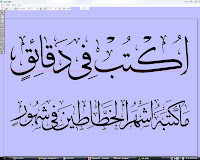 اُكْتُبْ فِي دَقَائِقٍ
مَا كَتَبَهُ أَشْهَرُ الْخَطَّاطِينَ فِي شُهُورٍ